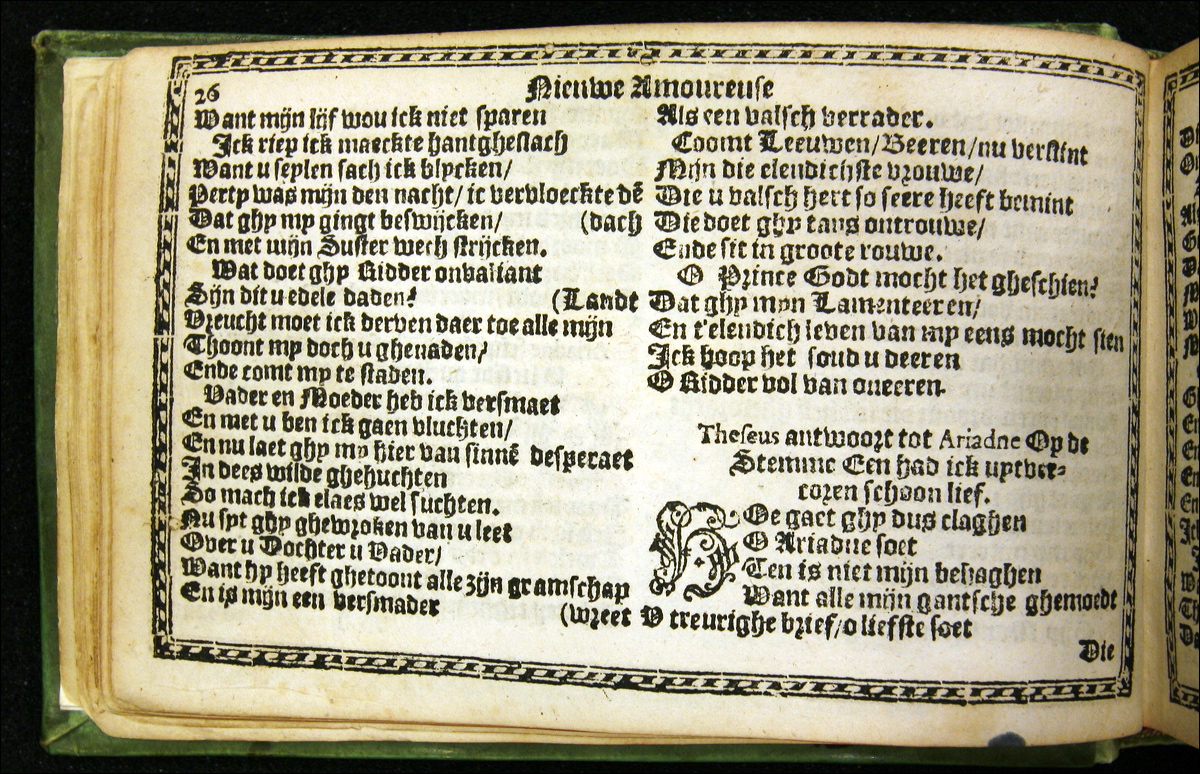 26
Nieuwe Amoureuse
Want mijn lijf wou ick niet sparen
Ick riep ick maeckte hantgheslach
Want u seylen sach ick blycken/
Pertp was mijn den nacht/ ic vervloeckte dē
Dat ghy my gingt beswijcken/ (dach
En met mijn Suster wech strijcken.
Wat doet ghy Ridder onvaliant
Sijn dit u edele daden? (Landt
Vreucht moet ick derven daer toe alle mijn
Thoont my doch u ghenaden/
Ende comt my te staden.
Vader en Moeder heb ick versmaet
En met u ben ick gaen vluchten/
En nu laet ghy my hier van sinnē desperaet
In dees wilde ghehuchten
So mach ick elaes wel suchten.
Nu syt ghy ghewroken van u leet
Over u Dochter u Vader/
Want hy heeft ghetoont alle zijn gramschap
En is mijn een versmader (wreet
Als een valsch verrader.
Coomt Leeuwen/Beeren/nu verslint
Mijn die elendichste vrouwe/
Die u valsch hert so seere heeft bemint
Die doet ghy tans ontrouwe/
Ende sit in groote rouwe.
O Prince Godt mocht het gheschien?
Dat ghy myn Lamenteeren/
En t'elendich leven van my eens mocht sien
Ick hoop het soud u deeren
O Ridder vol van oneeren.
Theseus antwoort tot Ariadne Op de
Stemme Een had ick uytver-
coren schoon lief.
HOe gaet ghy dus claghen
O Ariadne soet
Ten is niet mijn behaghen
Want alle mijn gantsche ghemoedt
V treurighe brief/o liefste soet
Die